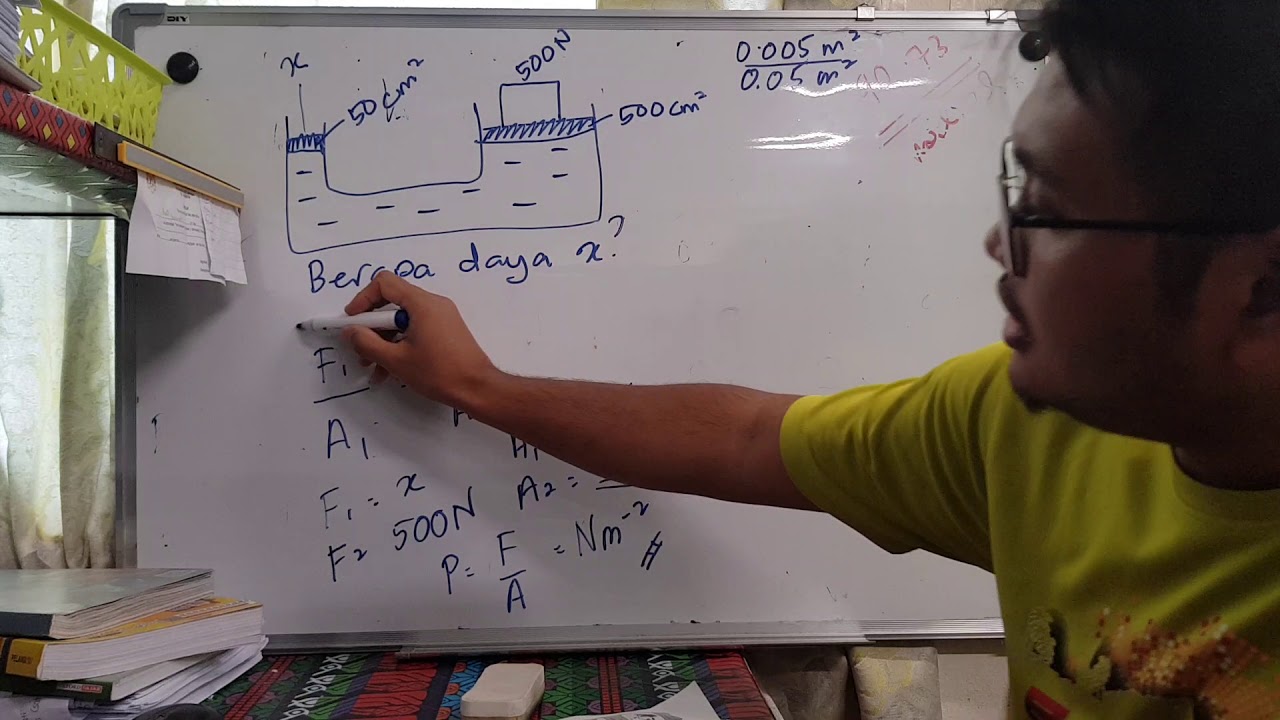 DIY
x
50 cm²
500N
500cm²
0.005 m²
0.05 m²
73
Berapa daya x?
F₁
A₁
A₁
A₂ =
F₁ = x
F₂ 500N
P = F/A = Nm⁻²